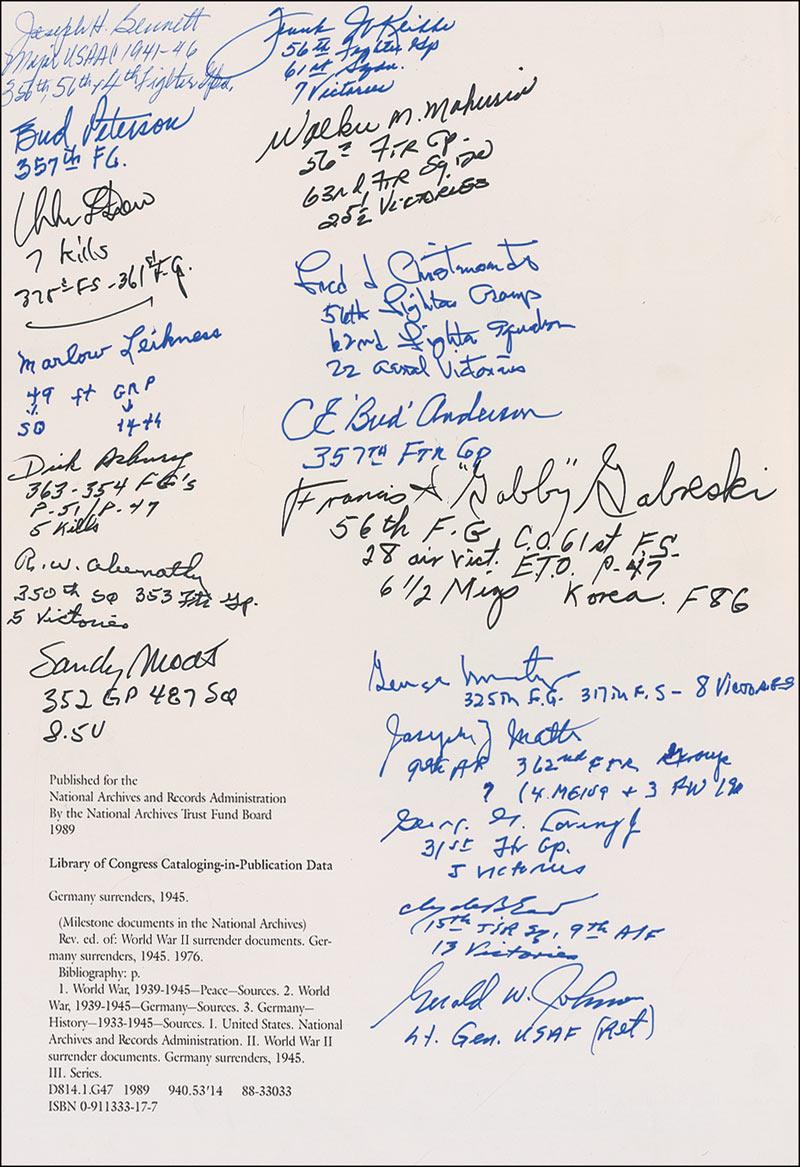 Joseph H. Bennett
Major USAAC 1941-46
356th, 56th & 4th Fighter Gps.
Bud Peterson
357th FG.
7 kills
375th FS - 361st F.G.
Marlow Leikness
49 ft GRP
SQ 14th
Dick Asbury
363-354 FG's
P-51/P-47
5 kills
R.W. Abernathy
350th SQ 353 Ftr Gp.
5 Victories
Sandy Moats
352 GP 487 SQ
8.5V
Published for the
National Archives and Records Administration
By the National Archives Trust Fund Board
1989
Library of Congress Cataloging-in-Publication Data
Germany surrenders, 1945.
(Milestone documents in the National Archives)
Rev. ed. of: World War II surrender documents. Ger-
many surrenders, 1945. 1976.
Bibliography: p.
1. World War, 1939-1945—Peace—Sources. 2. World
War, 1939-1945—Germany—Sources. 3. Germany—
History—1933-1945—Sources. 1. United States. National
Archives and Records Administration. II. World War II
surrender documents. Germany surrenders, 1945.
III. Series.
D814.1.G47 1989 940.53'14 88-33033
ISBN 0-911333-17-7
Frank W. Klibbe
56th Fighter Gp
61st Sqdn.
7 Victories
Walker M. Mahurin
56th FTR GP.
63rd FTR SQ
25½ VICTORIES
Fred J Christensen Jr
56th Fighter Group
62nd Fighter Squadron
22 Aerial Victories
CE 'Bud' Anderson
357TH FTR GP
Francis S "Gabby" Gabreski
56th F.G C.O. 61st F.S.
28 air vict. E.T.O. P-47
6 1/2 Migs Korea. F86
George
325TH F.G. 317TH F.S - 8 VICTORIES
Joseph Z Matte
9th AF 362nd FTR Group
7 (4 ME109 + 3 FW 190
George G. Loring Jr
31st Ftr Gp.
5 victories
Clyde B East
15th T/R Sq, 9th A/F
13 Victories
Gerald W. Johnson
Lt. Gen. USAF (Ret)